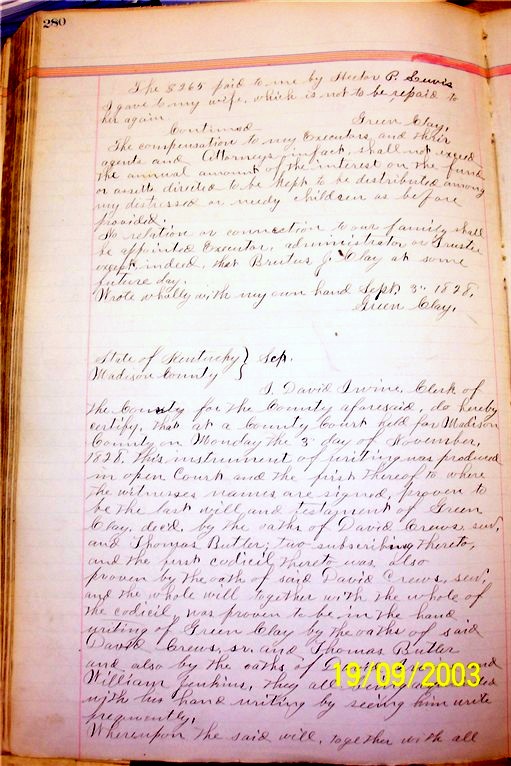 280
The $265 paid to me by Hector P. Lewis
I gave to my wife, which is not to be repaid to
her again
Green Clay.
Continued
The compensation to my Executors, and their
agents and Attorneys in fact, shall not exceed
the annual amount of the interest on the fund
or assets directed to be kept to be distributed among
my distressed or needy children as before
provided.
No relation or connection to our family shall
be appointed Executor, administrator or Trustee
except, indeed, that Brutus J. Clay at some
future day.
Wrote wholly with my own hand Sept. 3" 1828.
Green Clay.
State of Kentucky } Scp.
Madison County
I, David Irvine, Clerk of
the County for the County aforesaid, do hereby
certify, that at a County Court held for Madison
County on Monday the 3" day of November,
1828. This instrument of writing was produced
in open Court and the first thereof to where
the witnesses names are signed, proven to
be the last will and testament of Green
Clay, decd. by the oaths of David Crews, sen,
and Thomas Butler, two subscribing thereto,
and the first codicil thereto was also
proven by the oath of said David Crews, sen,
and the whole will together with the whole of
the codicil, was proven to be in the hand
writing of Green Clay by the oaths of said
David Crews, sr. and Thomas Butler
and also by the oaths of
William Jenkins, they all being
with his hand writing by seeing him write
frequently.
Whereupon the said will, together with all
19/09/2003